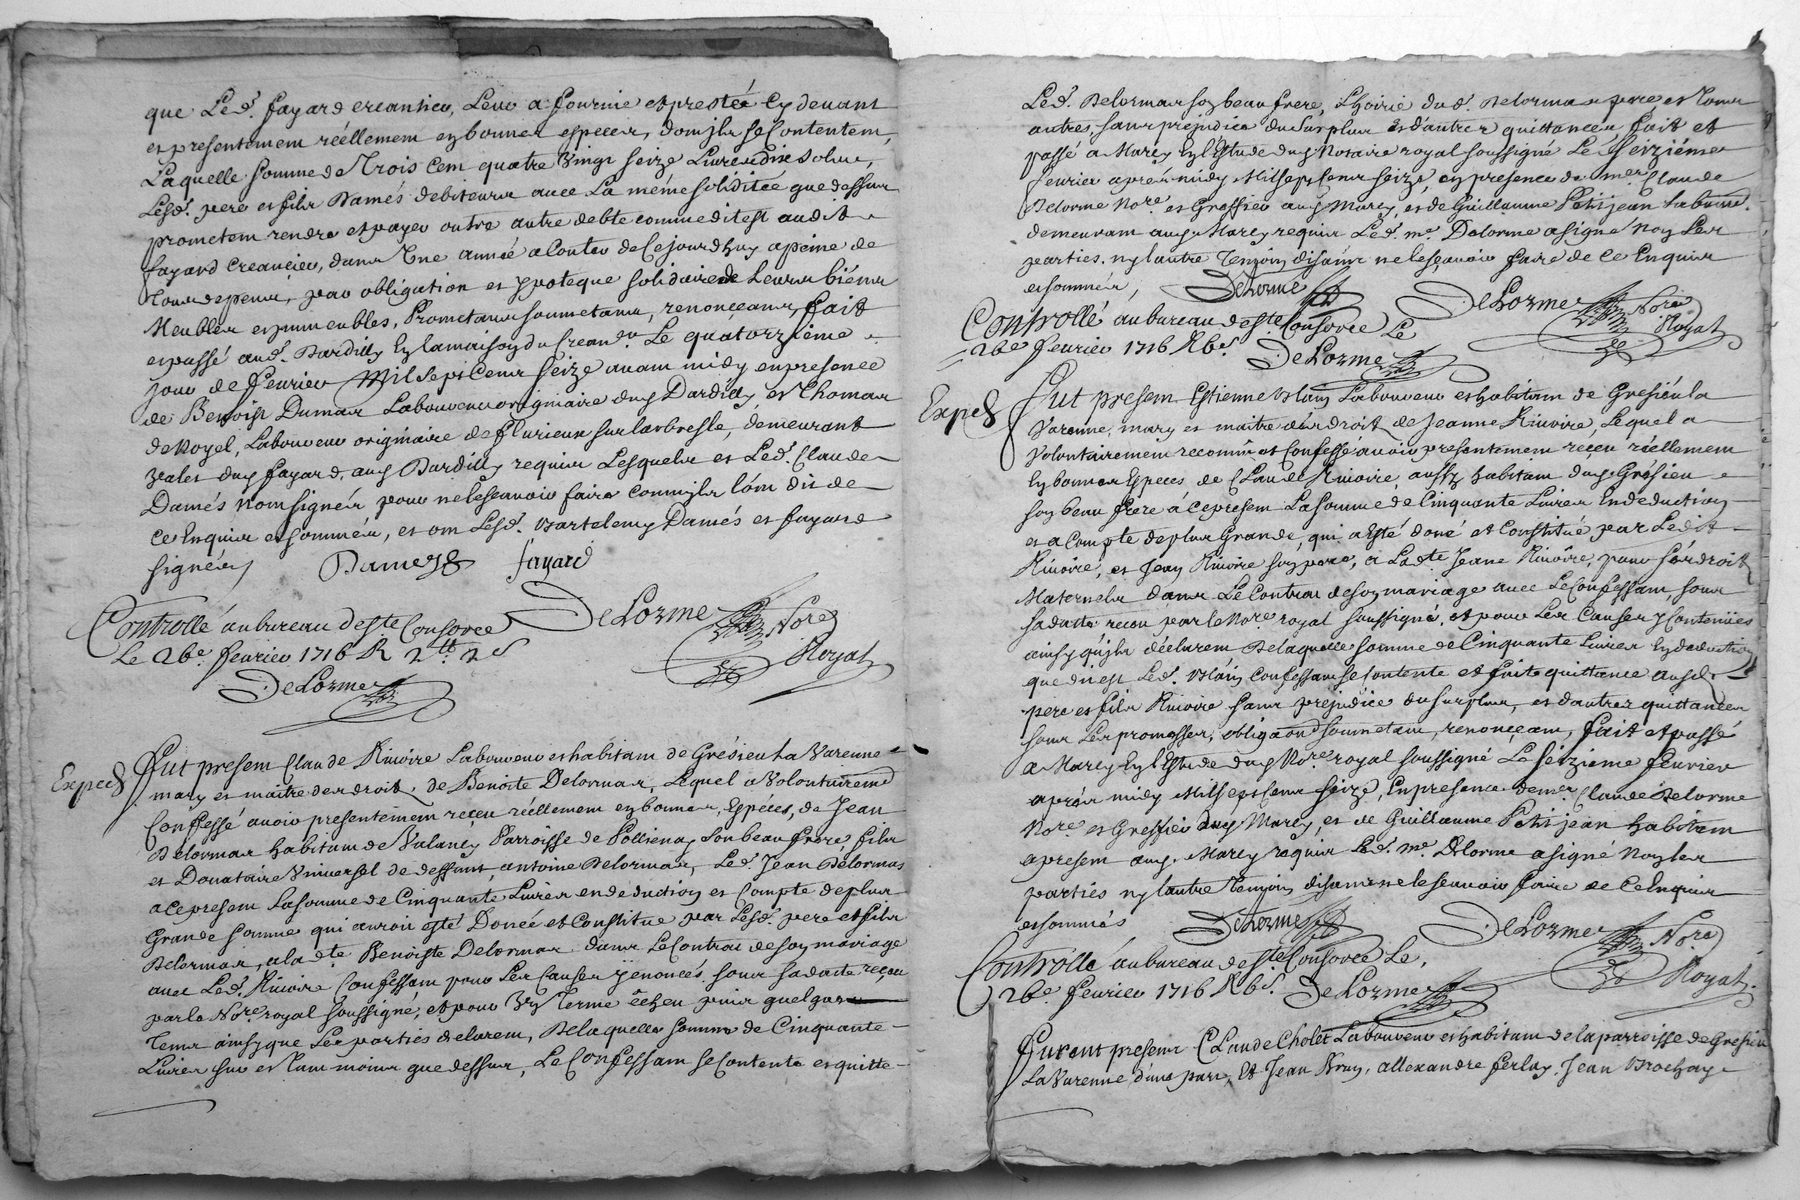 que Led. fayard creantier, Leur a fournie et prestée Cy devant
et presentement réellement en bonnes especes, dom jls se Contentem,
Laquelle somme de Trois Cem quatre Vingt Seize Livres dix solus,
Lesd. pere et fils Damés debiteurs avec La méme soliditée que dessus
prometem rendre et payer outre autre debte comme dit est audit
fayard Creancier, dans Une année a Conter de Ce jourdhuy a peine de
Tous depens, par obligation et ypoteque solidaire de Leurs biéns
Meubles et jmmeubles, Prometans soumetans, renonceans, fait
et passé aud. Dardilly En la maison du Crean.er Le quatorzième
jour de feurier Mil Sept Cens Seize auam midy en presence
de Benoist Dumas Laboureur originaire dud. Dardilly, et Thomas
de Noyel, Laboureur originaire de flurieux sur larbresle, demeurant
valet dud. fayard, aud. Dardilly requis Lesquels et Led. Claude
Damés nom signés pour ne le sçauoir faire comm jls lom dit de
Ce Enquis et sommés, et om Lesd. Bartelemy Damés et fayard
signés
Dames fayard
DeLorme No.re Royal
Controllé au bureau de Ste Consorce
Le 26e feurier 1716 R 2tt 2s
DeLorme
Exped.
Fut presem Claude Riuoire Laboureur et habitam de Grésieu La Varenne
mary et maitre des droits de Benoite Delormas, Lequel a Volontairemt
Confessé auoir presentement reçeu réellement en bonnes Especes, de Jean
Delormas habitam de Valancy Parroisse de Pollienay son beau frere, fils
et Donataire Vniuersel de deffunt antoine Delormas, Led. Jean Delormas
a Ce presem La somme de Cinquante Liures en deduction et Compte de plus
Grande somme qui auroit esté Donée et Constitue par Lesd. pere et fils
Delormas, a lad.te Benoiste Delormas dans Le Contrat de son mariage
auec Led. Riuoire Confessam pour Les Causes y enoncés sous sa datte reçeu
par le No.re royal soussigné, et pour Vn Terme écheu puis quelque
Tems ainsy que Les parties declarem, De laquelle somme de Cinquante
Liures sur et Tam moins que dessus, Le Confessam se Contente et quitte
Led. Delormas son beau frere, Lhoirie dud. Delormas pere et Tous
autres, sans prejudice du surplus et dautres quittances, fait et
passé a Marcy En l'Estude du No.taire royal soussigné Le seiziéme
feurier aprés midy Mil sept Cens seize, en presence de m.er Claude
Delorme No.re et Greffier aud. Marcy, et de Guillaume Petit jean Labour.
demeuram aud. Marcy requis Led. m.e Delorme a signé non Les
parties ny lautre Temoin disamt ne le sçauoir faire de Ce Enquis
et sommés,
DeLorme
DeLorme No.re Royal
Controllé au bureau de Ste Consorce Le
26e feurier 1716 R 6s.
DeLorme
Exped.
Fut presem Estienne Blain Laboureur et habitam de Grésieu la
Varenne, mary et maitre des droits de Jeanne Riuoire, Lequel a
Volontairement reconnu et Confessé auoir presentement reçeu réellement
En bonnes Especes de Claude Riuoire, aussy habitam dud. Grésieu
son beau frere á Ce presem La somme de Cinquante Liures En deduction
et a Compte de plus Grande, qui a Esté doné et Constitué par Ledit
Riuoire, et Jean Riuoire son pere, a Lad.te Jeane Riuoire, pour ses droits
Maternels dans Le Contrat de son mariage auec Le Confessam, sous
sa datte reçeu par le No.re royal soussigné, et pour Les Causes y Contenües
ainsy qu'jls déclarem De laquelle somme de Cinquante Liures En deduction
que dit est Led. Blain Confessam se Contente et fait quittance ausd.
pere et fils Riuoire sans prejudice du surplus, et dautres quittances
sous Les promesses, obligaõns soumetam, renonçam, fait et passé
a Marcy En l'Estude dud. No.re royal soussigné Le séizieme feurier
aprés midy Mil sept Cens seize, En presence de m.er Claude Delorme
No.re et Greffier dud. Marcy, et de Guillaume Petit jean habitam
a presem aud. Marcy requis Led. m.e Delorme a signé non les
parties ny lautre Temoin disams ne le sçauoir faire de Ce Enquis
et sommés
DeLorme
DeLorme No.re Royal
Controllé au bureau de Ste Consorce Le
26e feurier 1716 R 6s.
DeLorme
Furent presens Claude Cholet Laboureur et habitam de la parroisse de Grésieu
La Varenne d'une part, Et Jean Brun, allexandre ferlay, Jean Brochay